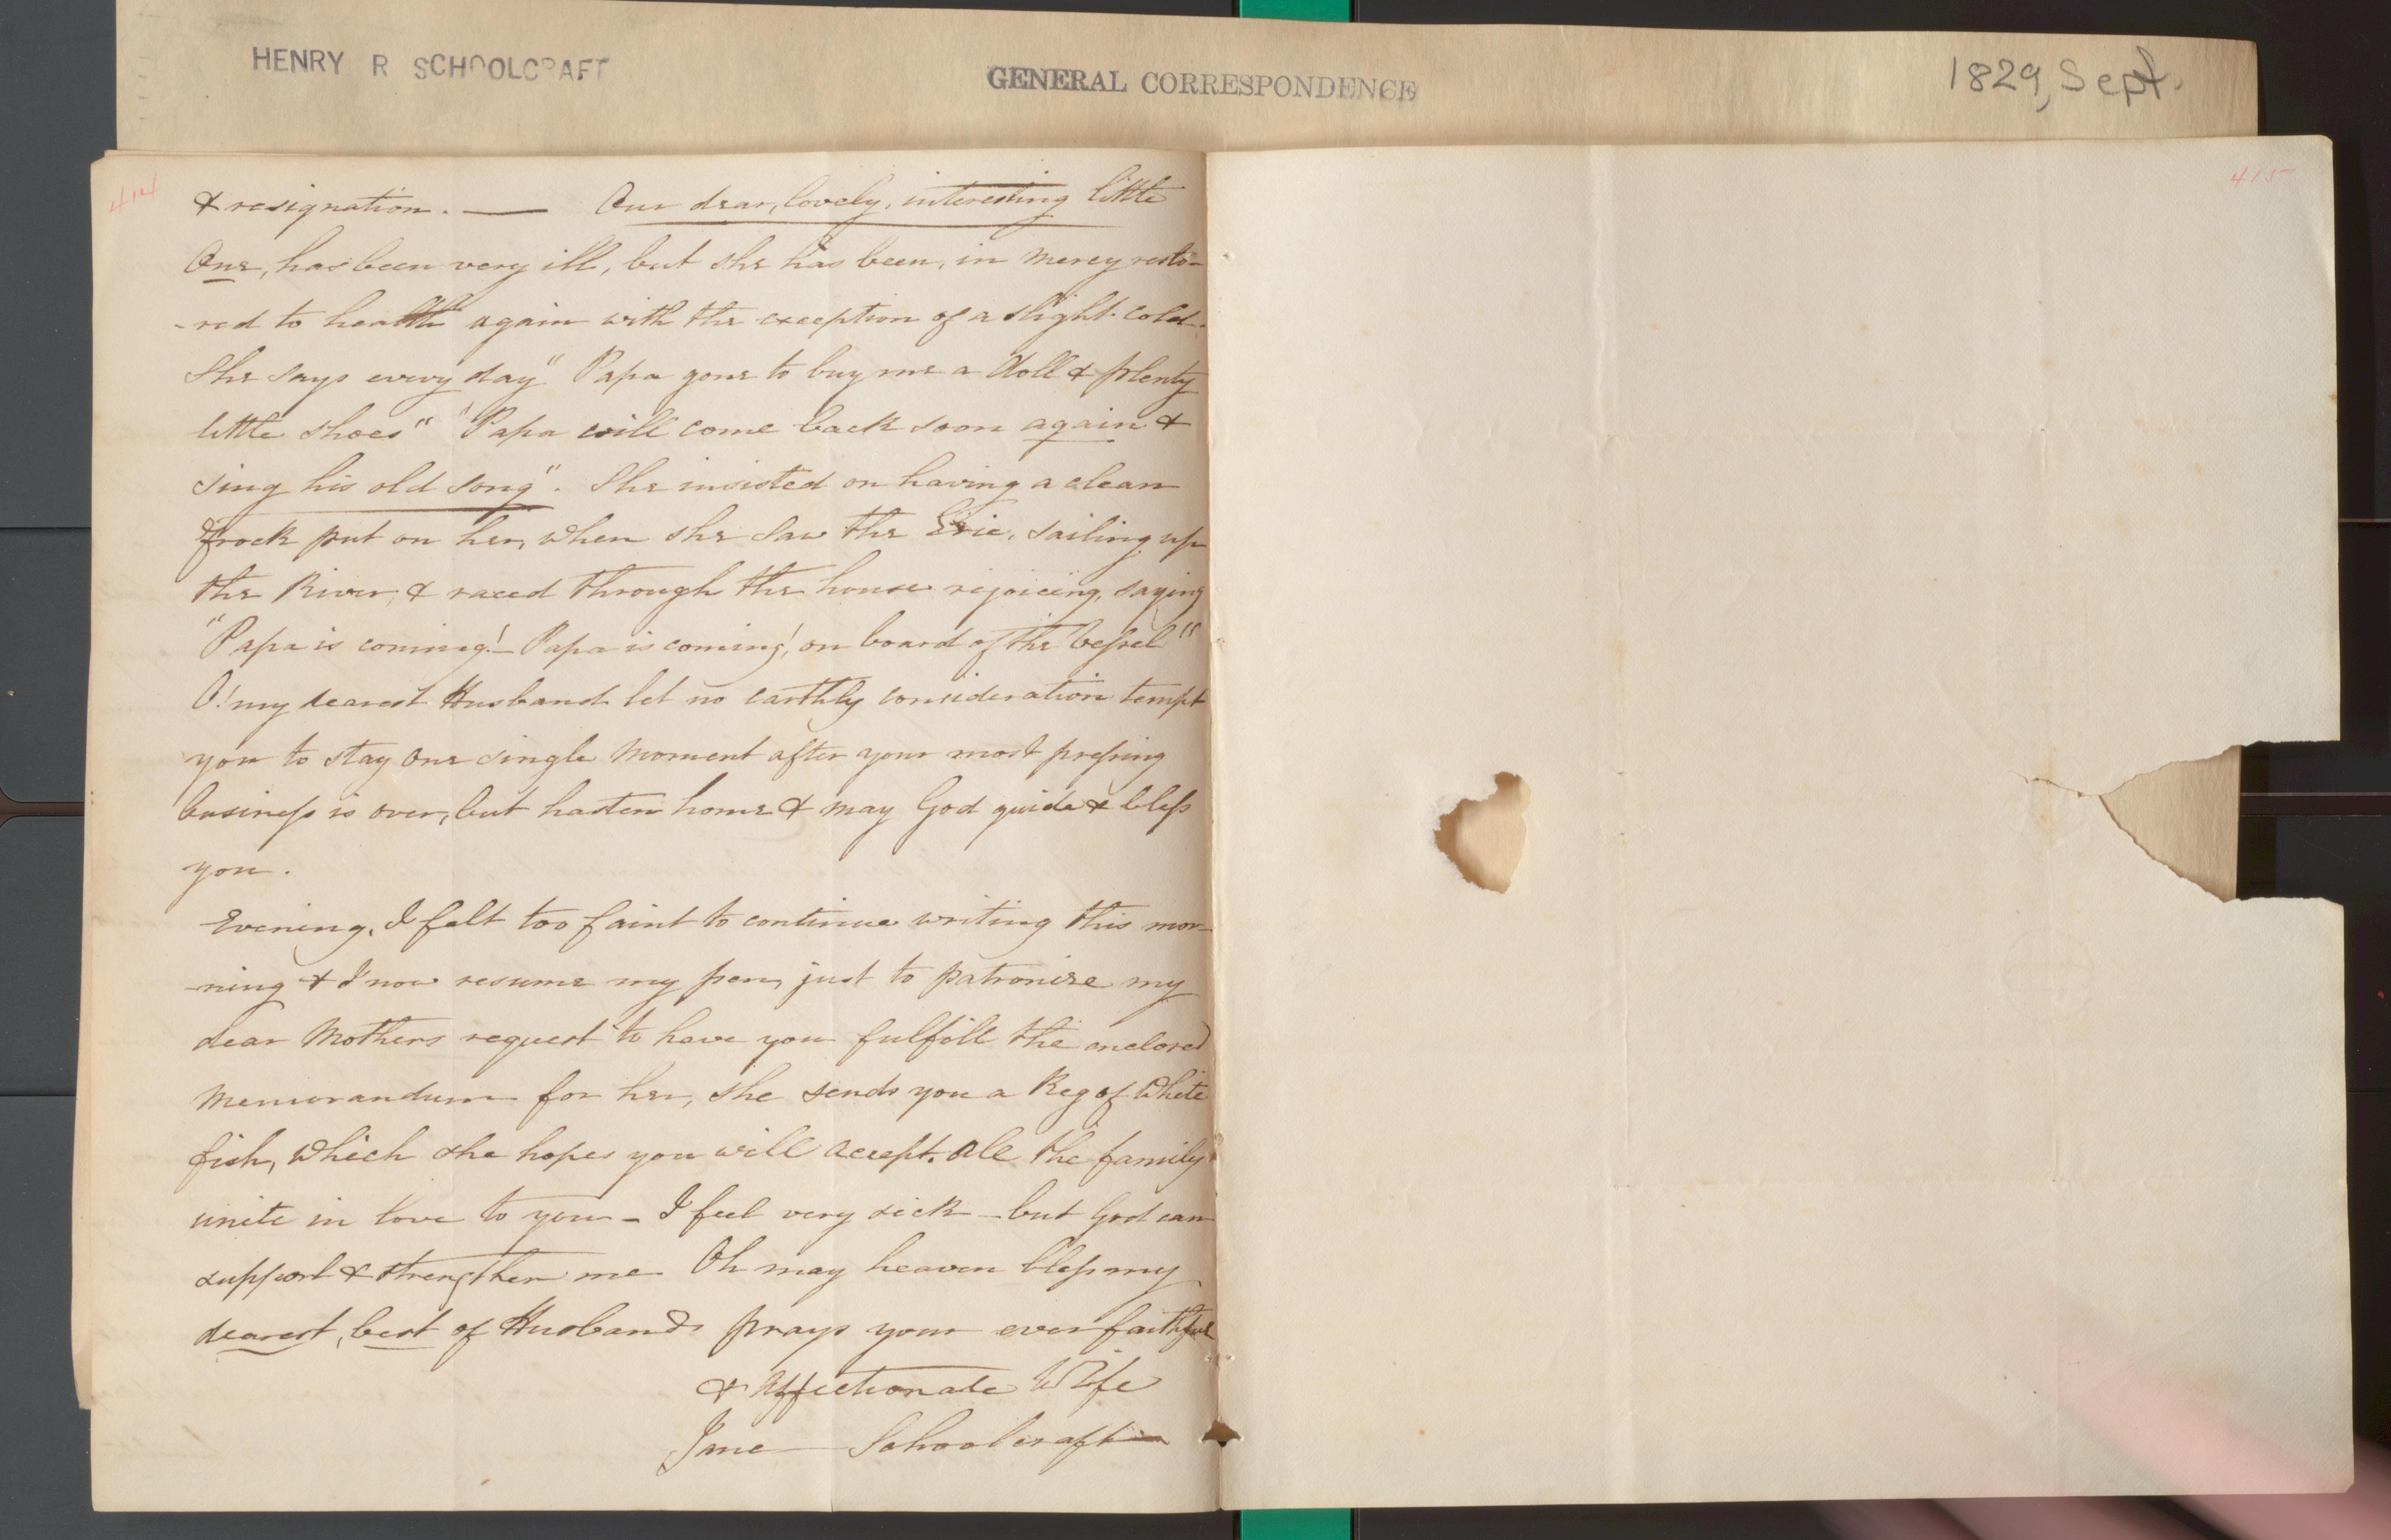 HENRY R SCHOOLCRAFT
GENERAL CORRESPONDENCE
1829, Sept.
414
415
& resignation. — Our dear, lovely, interesting little
One, has been very ill, but she has been, in mercy resto-
-red to health again with the exception of a slight cold.
She says every day "Papa gone to buy me a Doll & plenty
little shoes" "Papa will come back soon again &
sing his old song". She insisted on having a clean
frock put on her, when she saw the Erie, sailing up
the River, & raced through the house rejoicing, saying
"Papa is coming! – Papa is coming! on board of the vessel"
O! my dearest Husband let no earthly consideration tempt
you to stay one single moment after your most pressing
business is over, but hasten home & may God guide & bless
you.
Evening, I felt too faint to continue writing this mor-
-ning & I now resume my pen, just to patronise my
dear Mothers request to have you fulfill the enclosed
Memorandum for her, she sends you a Keg of White
fish, which she hopes you will accept. All the family
unite in love to you – I feel very sick – but God can
support & strengthen me Oh may heaven bless my
dearest, best of Husbands prays your ever faithful
& affectionate Wife
Jane Schoolcraft